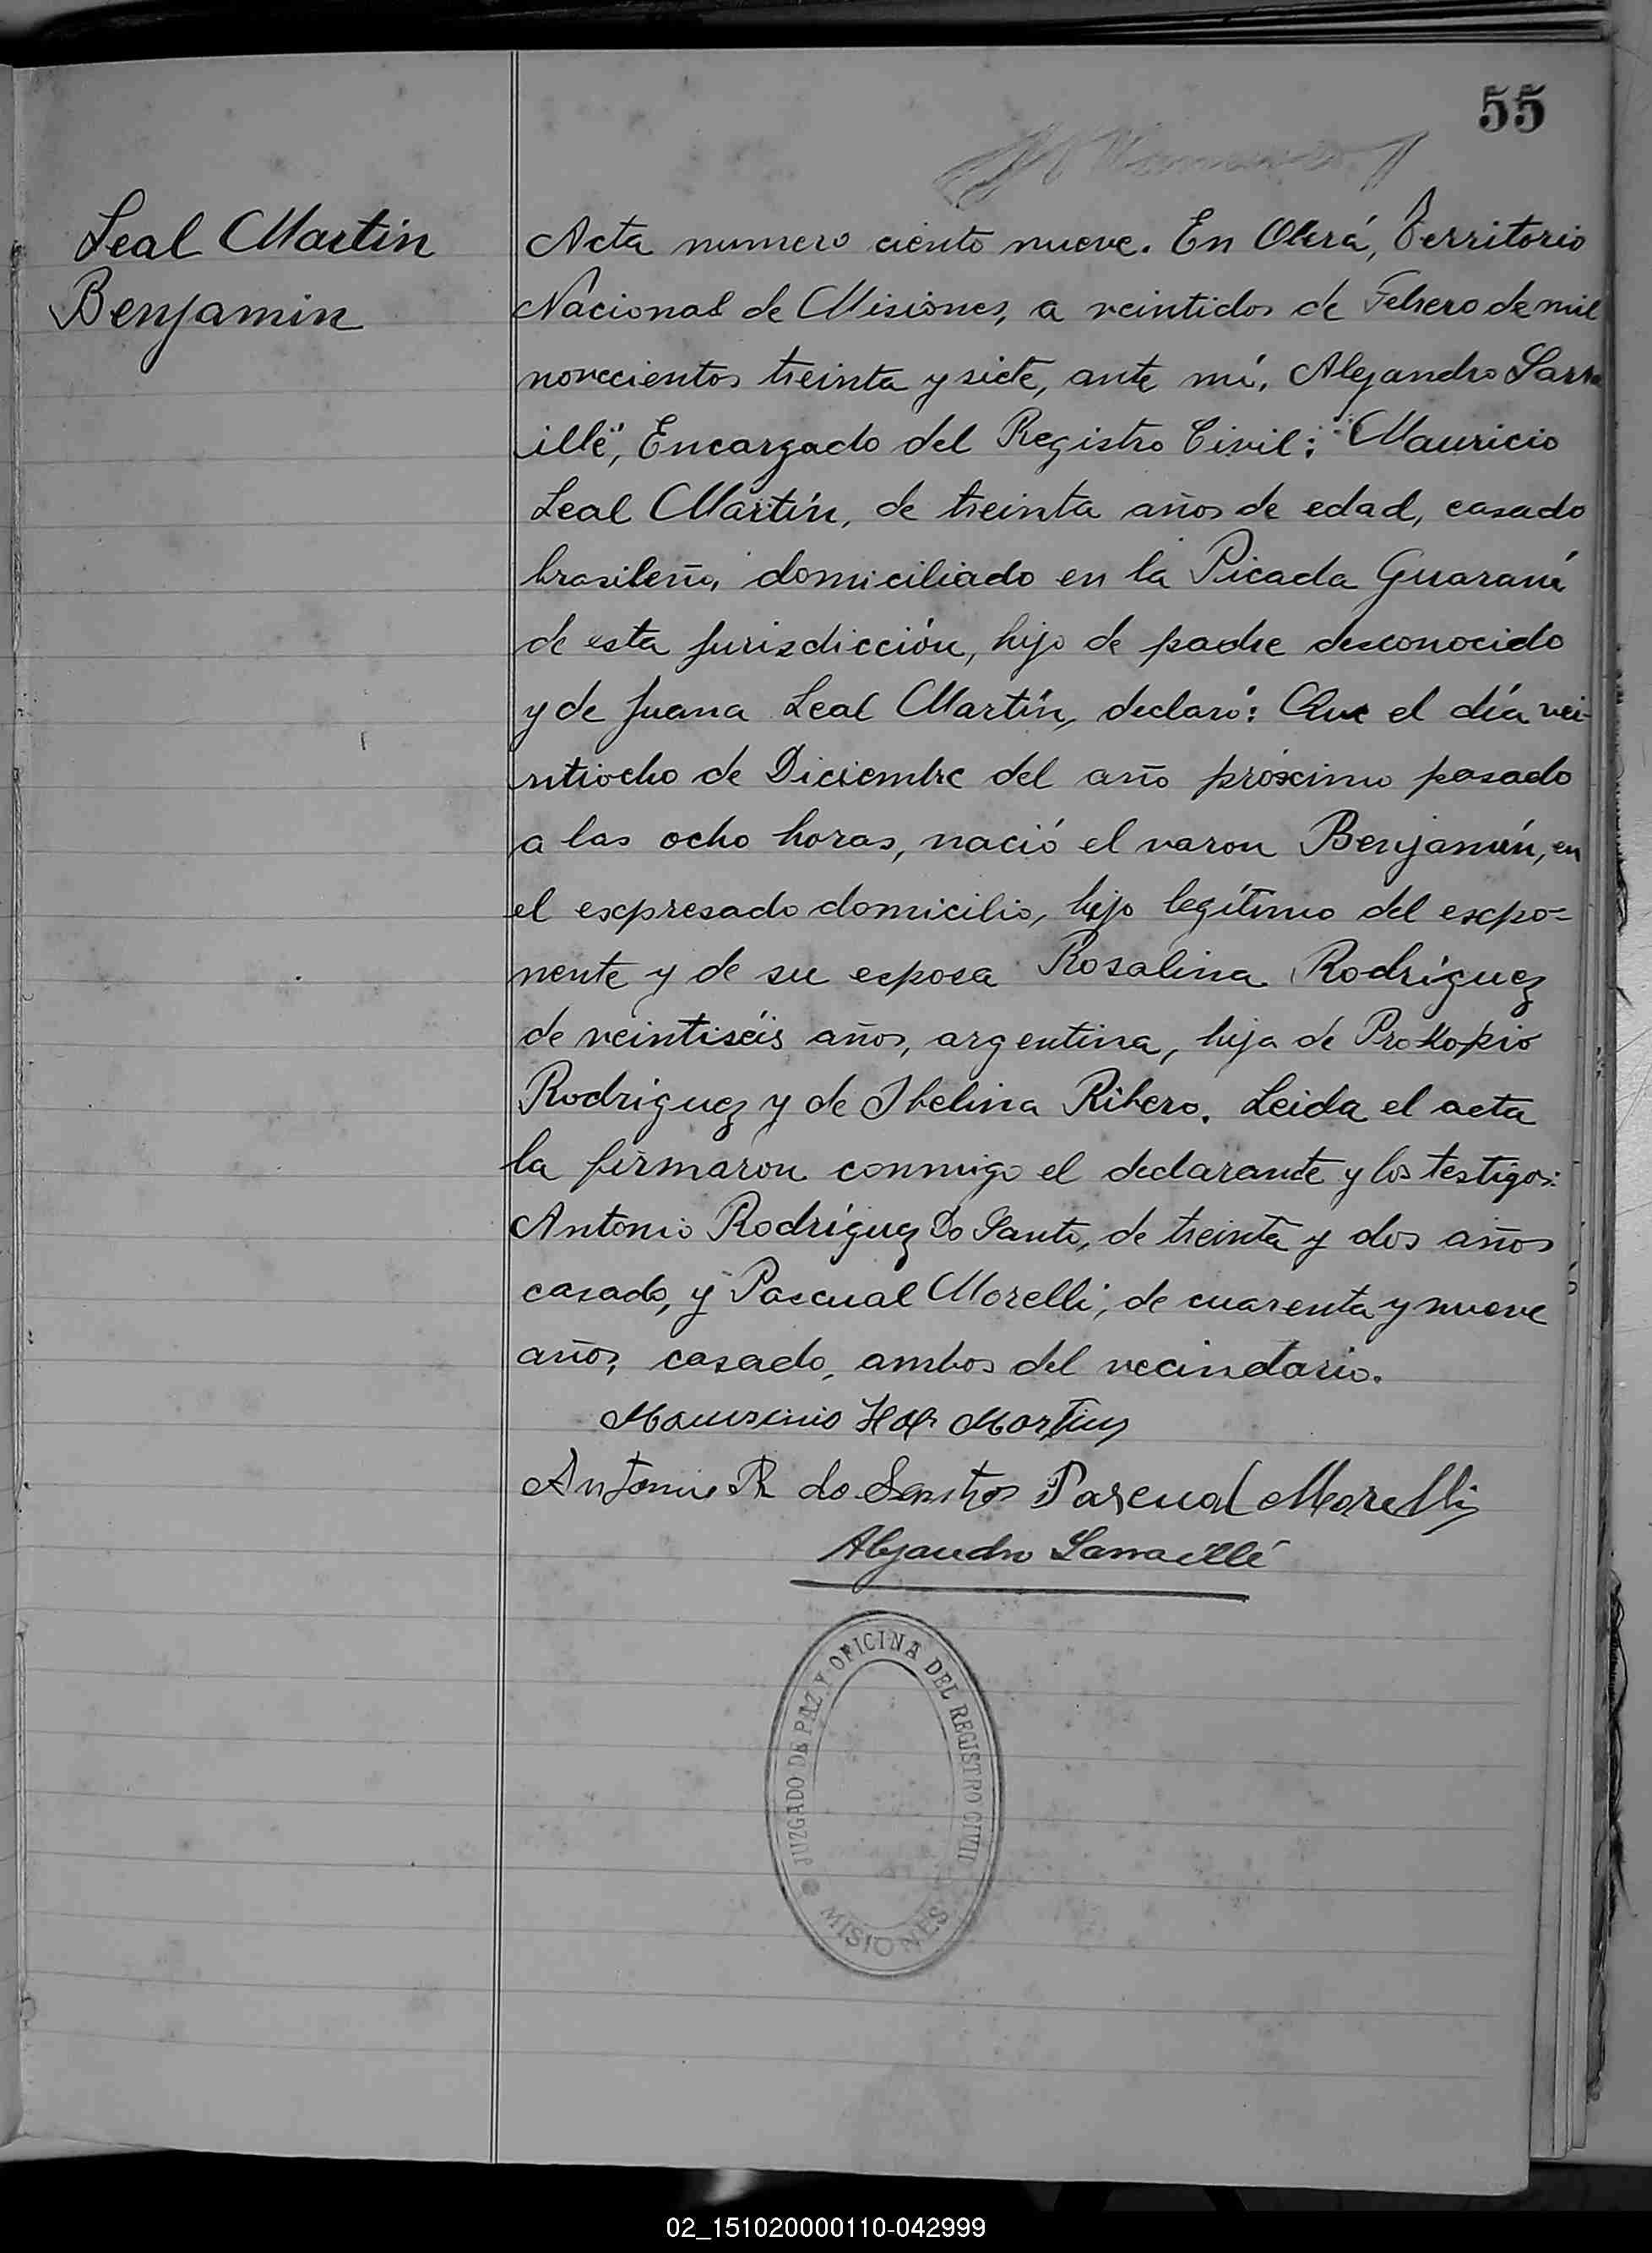 55
Leal Martin
Benjamin
Acta numero ciento nueve. En Oberá, Territorio
Nacional de Misiones, a veintidos de Febrero de mil
novecientos treinta y siete, ante mí, Alejandro Larra
illé, Encargado del Registro Civil: Mauricio
Leal Martín, de treinta años de edad, casado
brasileño, domiciliado en la Picada Guaraní
de esta jurisdicción, hijo de padre desconocido
y de Juana Leal Martín, declaró: Que el día vei-
ntiocho de Diciembre del año próximo pasado
a las ocho horas, nació el varon Benjamín, en
el expresado domicilio, hijo legítimo del expo=
nente y de su esposa Rosalina Rodríguez
de veintiséis años, argentina, hija de Prokopio
Rodríguez y de Ibelina Ribero. Leida el acta
la firmaron conmigo el declarante y los testigos:
Antonio Rodríguez Do Santo, de treinta y dos años
casado, y Pascual Morelli, de cuarenta y nueve
años, casado, ambos del vecindario.
Martins
Antonio R do Santos Pascual Morelli
Alejandro Larraillé
JUZGADO DE PAZ Y OFICINA DEL REGISTRO CIVIL
MISIONES
02_151020000110-042999